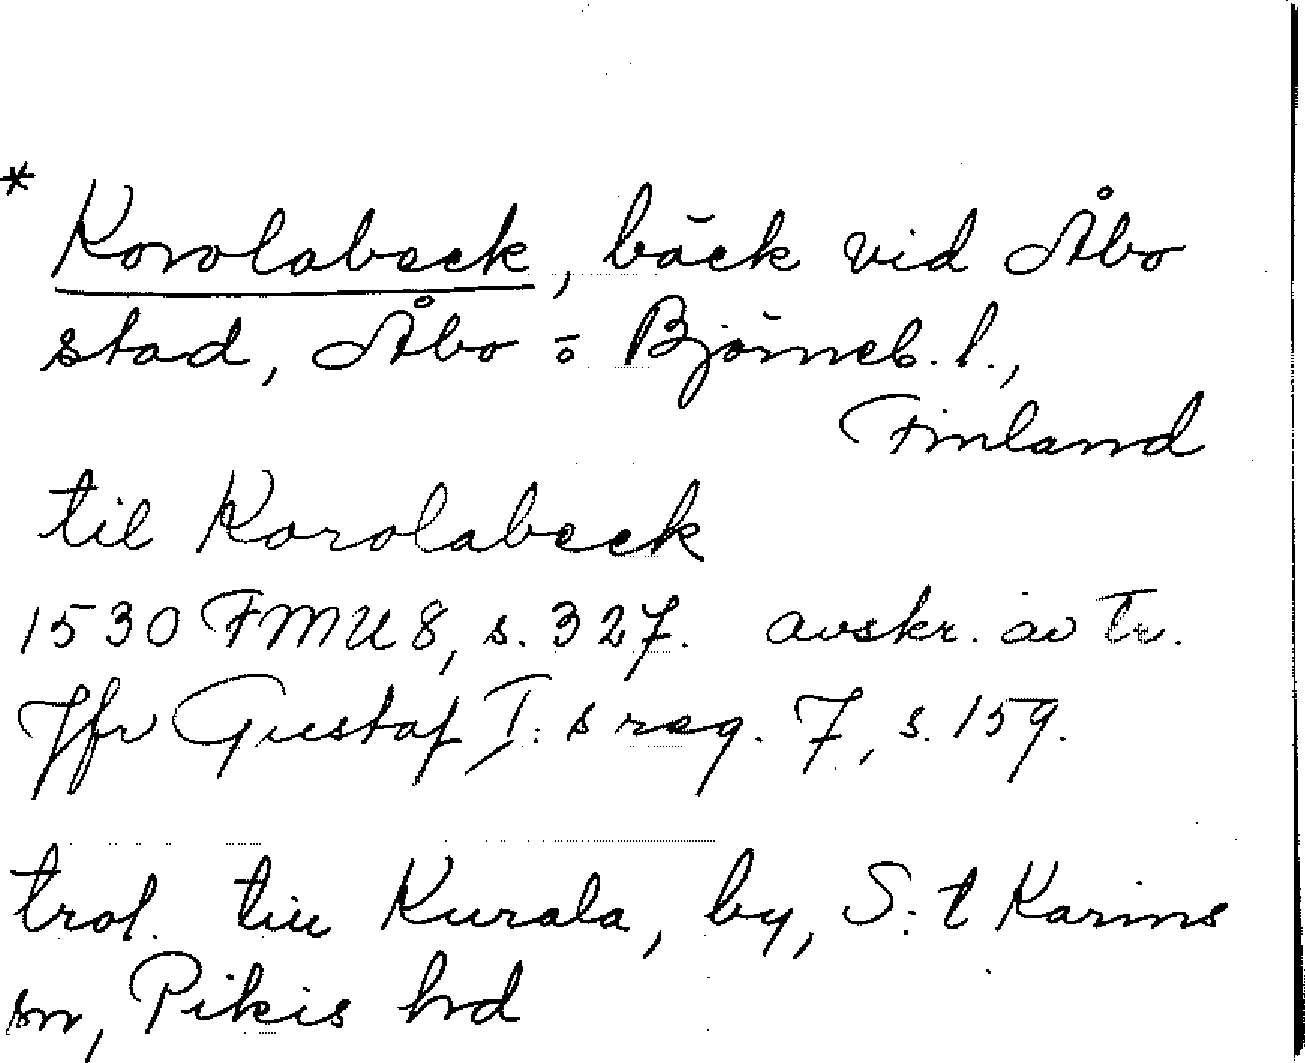 * Korolabeck, bäck vid Åbo
stad, Åbo o Björneb. l.,
Finland
til Korolabeck
1530 FMU 8, s. 327. avskr. av tr.
Jfr Gustaf I:s reg. 7, s. 159.
trol. till Kurala, by, S:t Karins
sn, Pikis hd